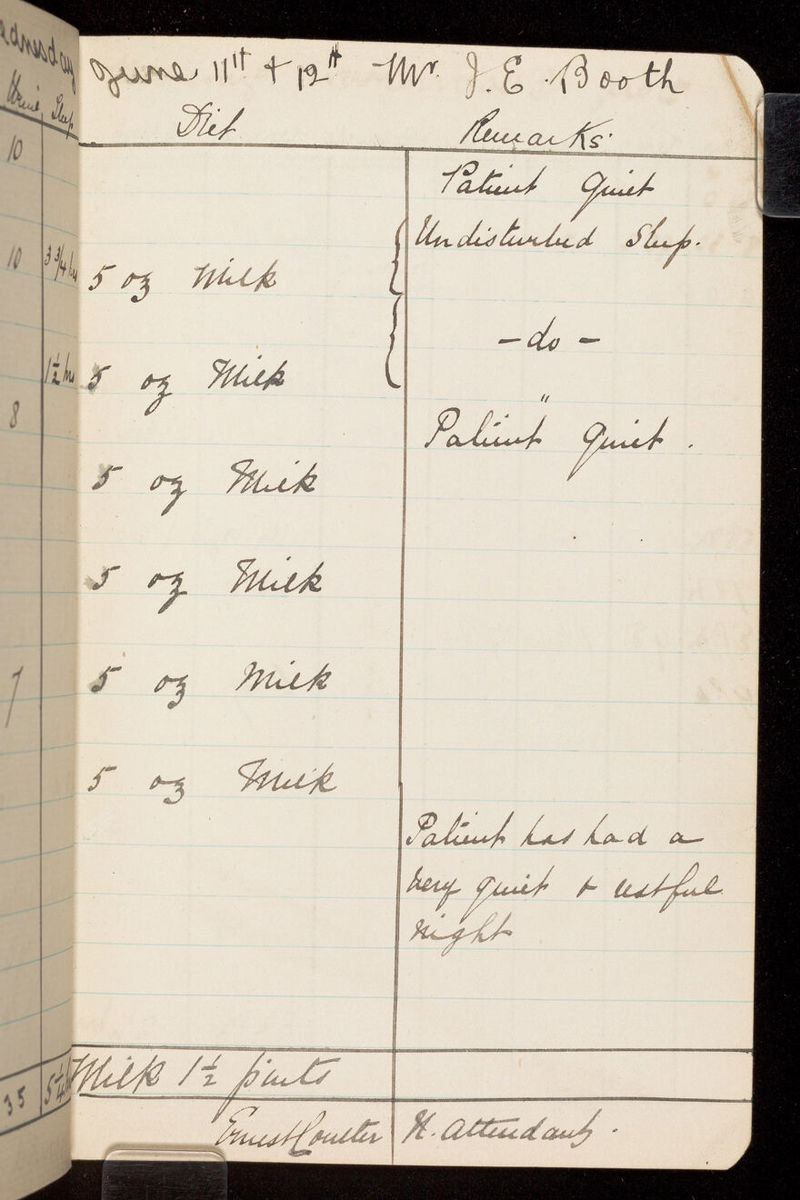 ednesday
Urine Sleep
10
10 3 3/4 hrs
1 1/2 hrs
8
7
35 5 1/4
June 11th + 12th Mr. J. E. Booth
Diet Remarks
Patient Quiet
Undisturbed Sleep.
5 oz Milk
- do -
5 oz Milk
"
Patient Quiet.
5 oz Milk
5 oz Milk
5 oz Milk
5 oz Milk
Patient has had a
very quiet & restful
night
Milk 1 1/2 pints
Ernest Coulter N. Attendant.